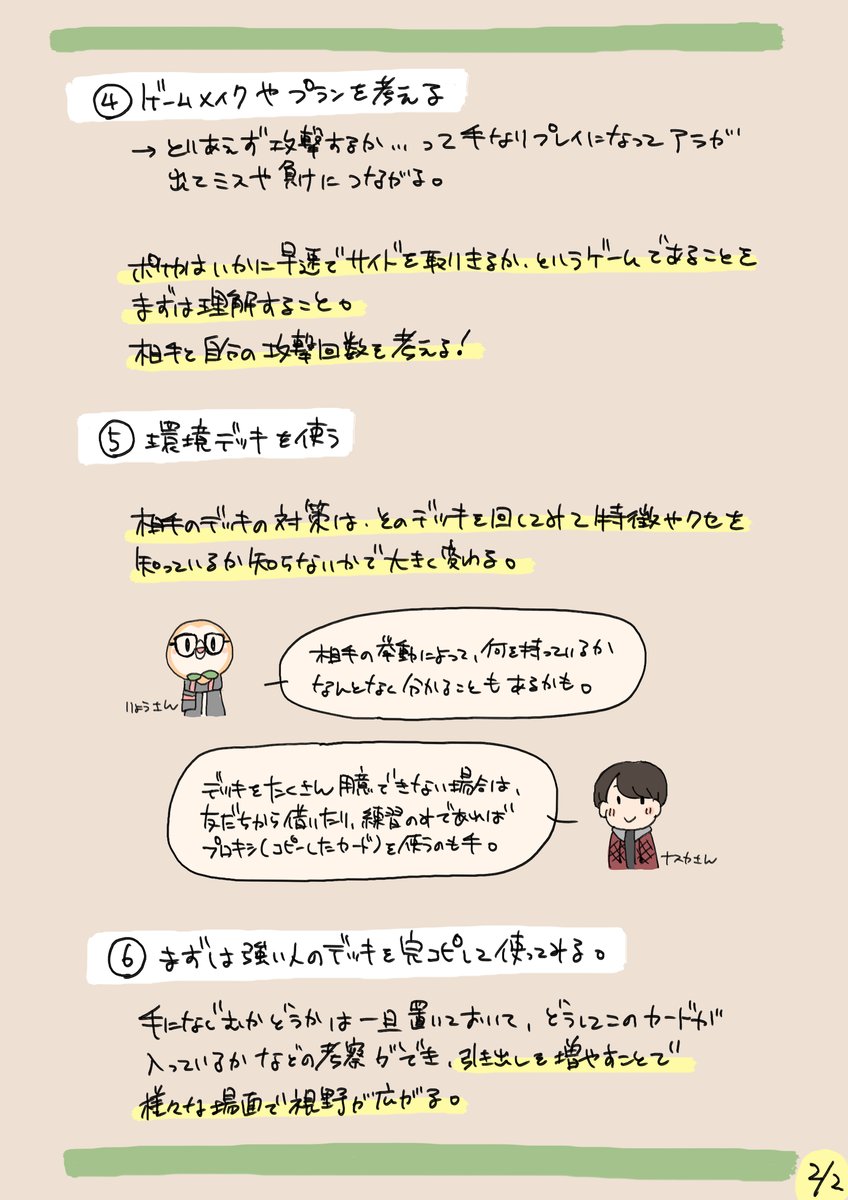 ④ ゲームメイクやプランを考える
→ とりあえず攻撃するか…って手なりプレイになってアラが
出てミスや負けにつながる。
ポケカはいかに早速でサイドを取りきるか、というゲームであることを
まずは理解すること。
相手と自分の攻撃回数を考える!
⑤ 環境デッキを使う
相手のデッキの対策は、そのデッキを回してみて特徴やクセを
知っているか知らないかで大きく変わる。
相手の挙動によって、何を持っているか
なんとなく分かることもあるかも。
りょうさん
デッキをたくさん用意できない場合は、
友だちから借りたり、練習のみであれば
プロキシ(コピーしたカード)を使うのも手。
ナスカさん
⑥ まずは強い人のデッキを完コピして使ってみる。
手になじむかどうかは一旦置いておいて、どうしてこのカードが
入っているかなどの考察ができ、引き出しを増やすことで
様々な場面で視野が広がる。
2/2